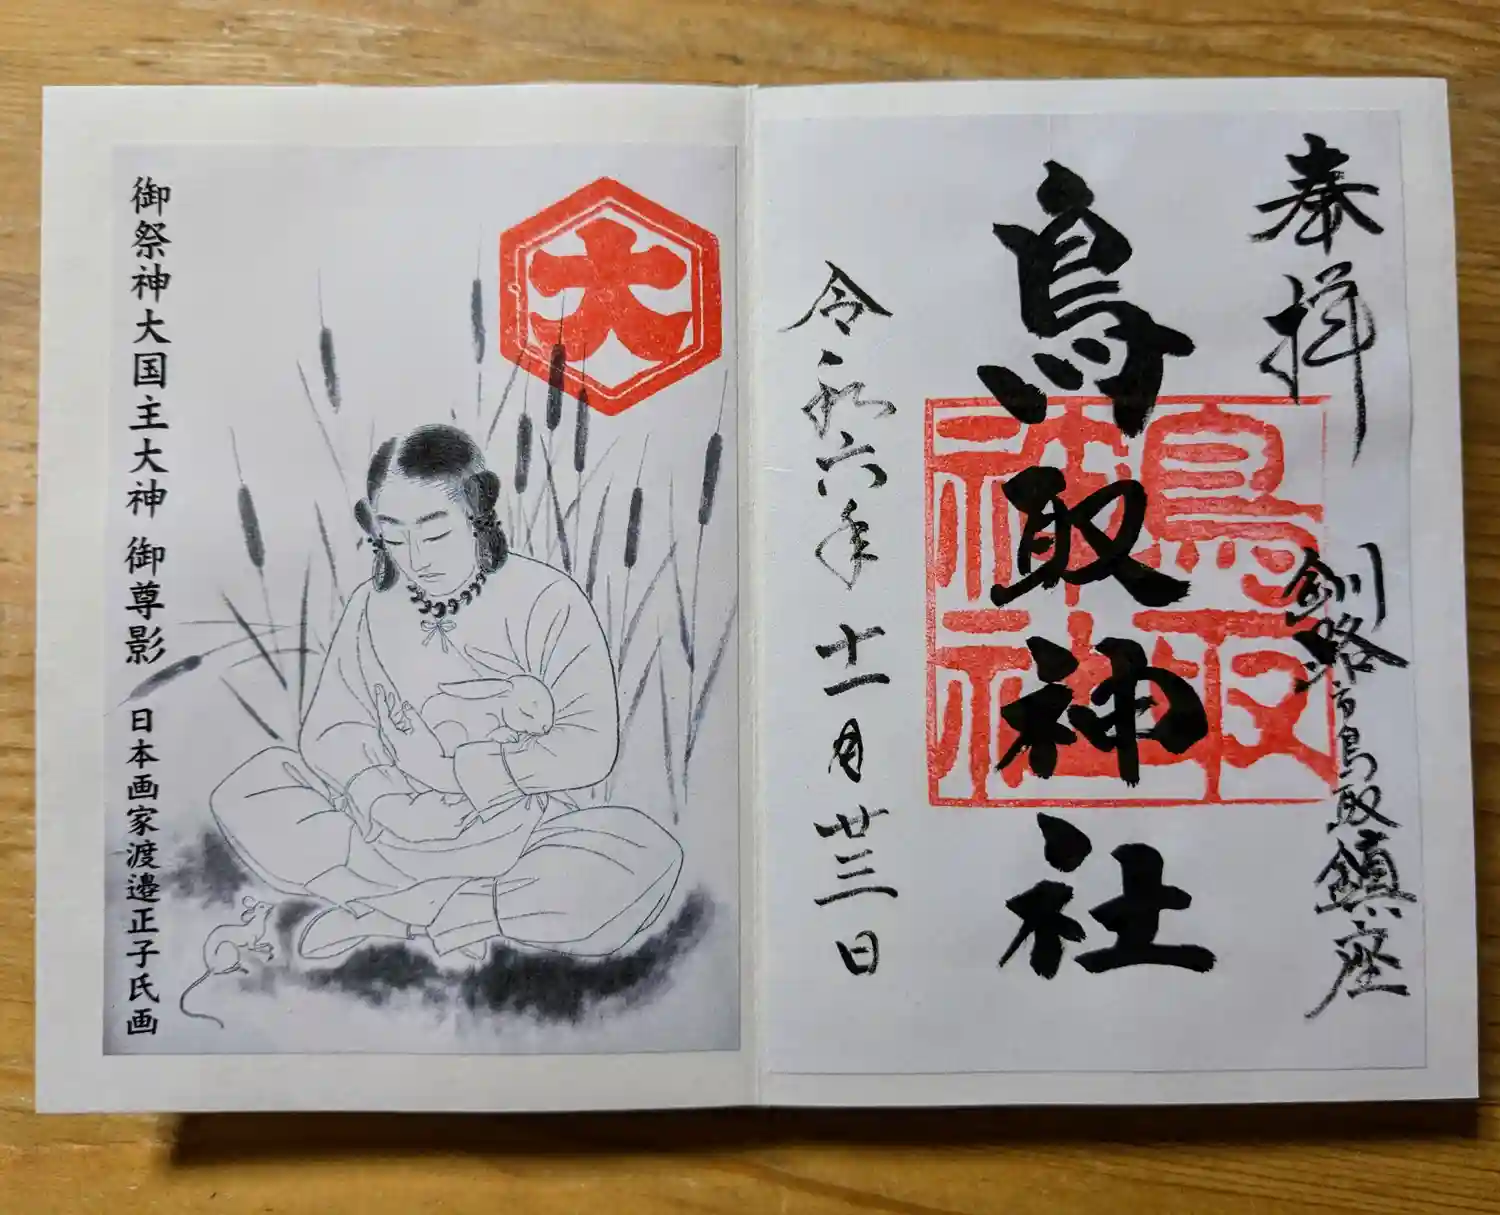 奉拝
釧路市鳥取鎮座
鳥取神社
鳥取神社
令和六年十一月廿三日
大
御祭神大国主大神 御尊影 日本画家渡邉正子氏画